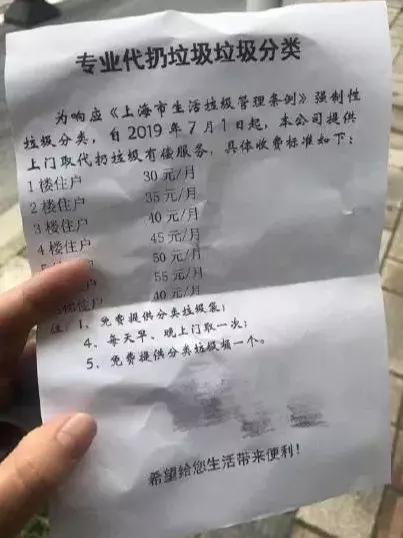 专业代扔垃圾垃圾分类
为响应《上海市生活垃圾管理条例》强制性
垃圾分类，自2019年7月1日起，本公司提供
上门取代扔垃圾有偿服务，具体收费标准如下：
1楼住户 30元/月
2楼住户 35元/月
3楼住户 40元/月
4楼住户 45元/月
50元/月
住户 55元/月
梯住户 40元/月
注：1、免费提供分类垃圾袋；
4、每天早、晚上门取一次；
5、免费提供分类垃圾桶一个。
希望给您生活带来便利！